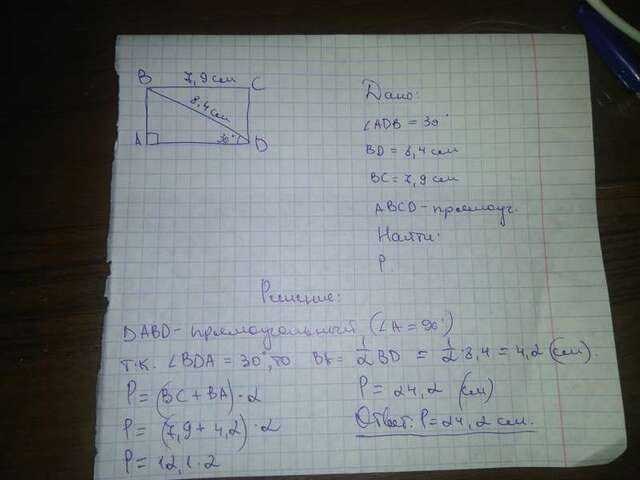 B 7,9 см C
8,4 см
A 30° D
Дано:
∠ADB = 30°
BD = 8,4 см
BC = 7,9 см
ABCD – прямоуг.
Найти:
P
Решение:
DABD – прямоугольный (∠A = 90°)
т.к. ∠BDA = 30°, то BA = 1/2 BD = 1/2 · 8,4 = 4,2 (см).
P = (BC + BA) · 2
P = (7,9 + 4,2) · 2
P = 12,1 · 2
P = 24,2 (см)
Ответ: P = 24,2 см.